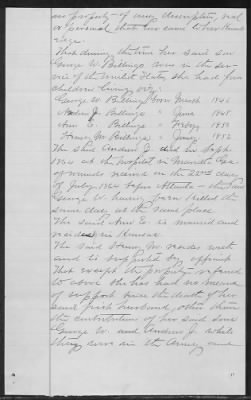 no property of any description, real
or personal that has came to her knowl
edge.
That during the time her said son
George W. Billings was in the ser-
vice of the United States, she had four
children living viz:
George W. Billings born March 1846
Andrew J. Billings " June
Ann E. Billings "
Henry M. Billings " June 1852
The said Andrew J. died in Sept
1864 at the hospital in Marietta Ga
of wounds received on the 22nd day
of July 1864 before Atlanta - the said
George W. having been killed the
same day at the same place
The said Ann E. is married and
resides in Kansas
The said Henry M. resides west
and is supported by
That except the property refered
to above she has had no means
of support since the death of her
said first husband, other than
the contributions of her said sons
George W. and Andrew J. while
they were in the Army, and